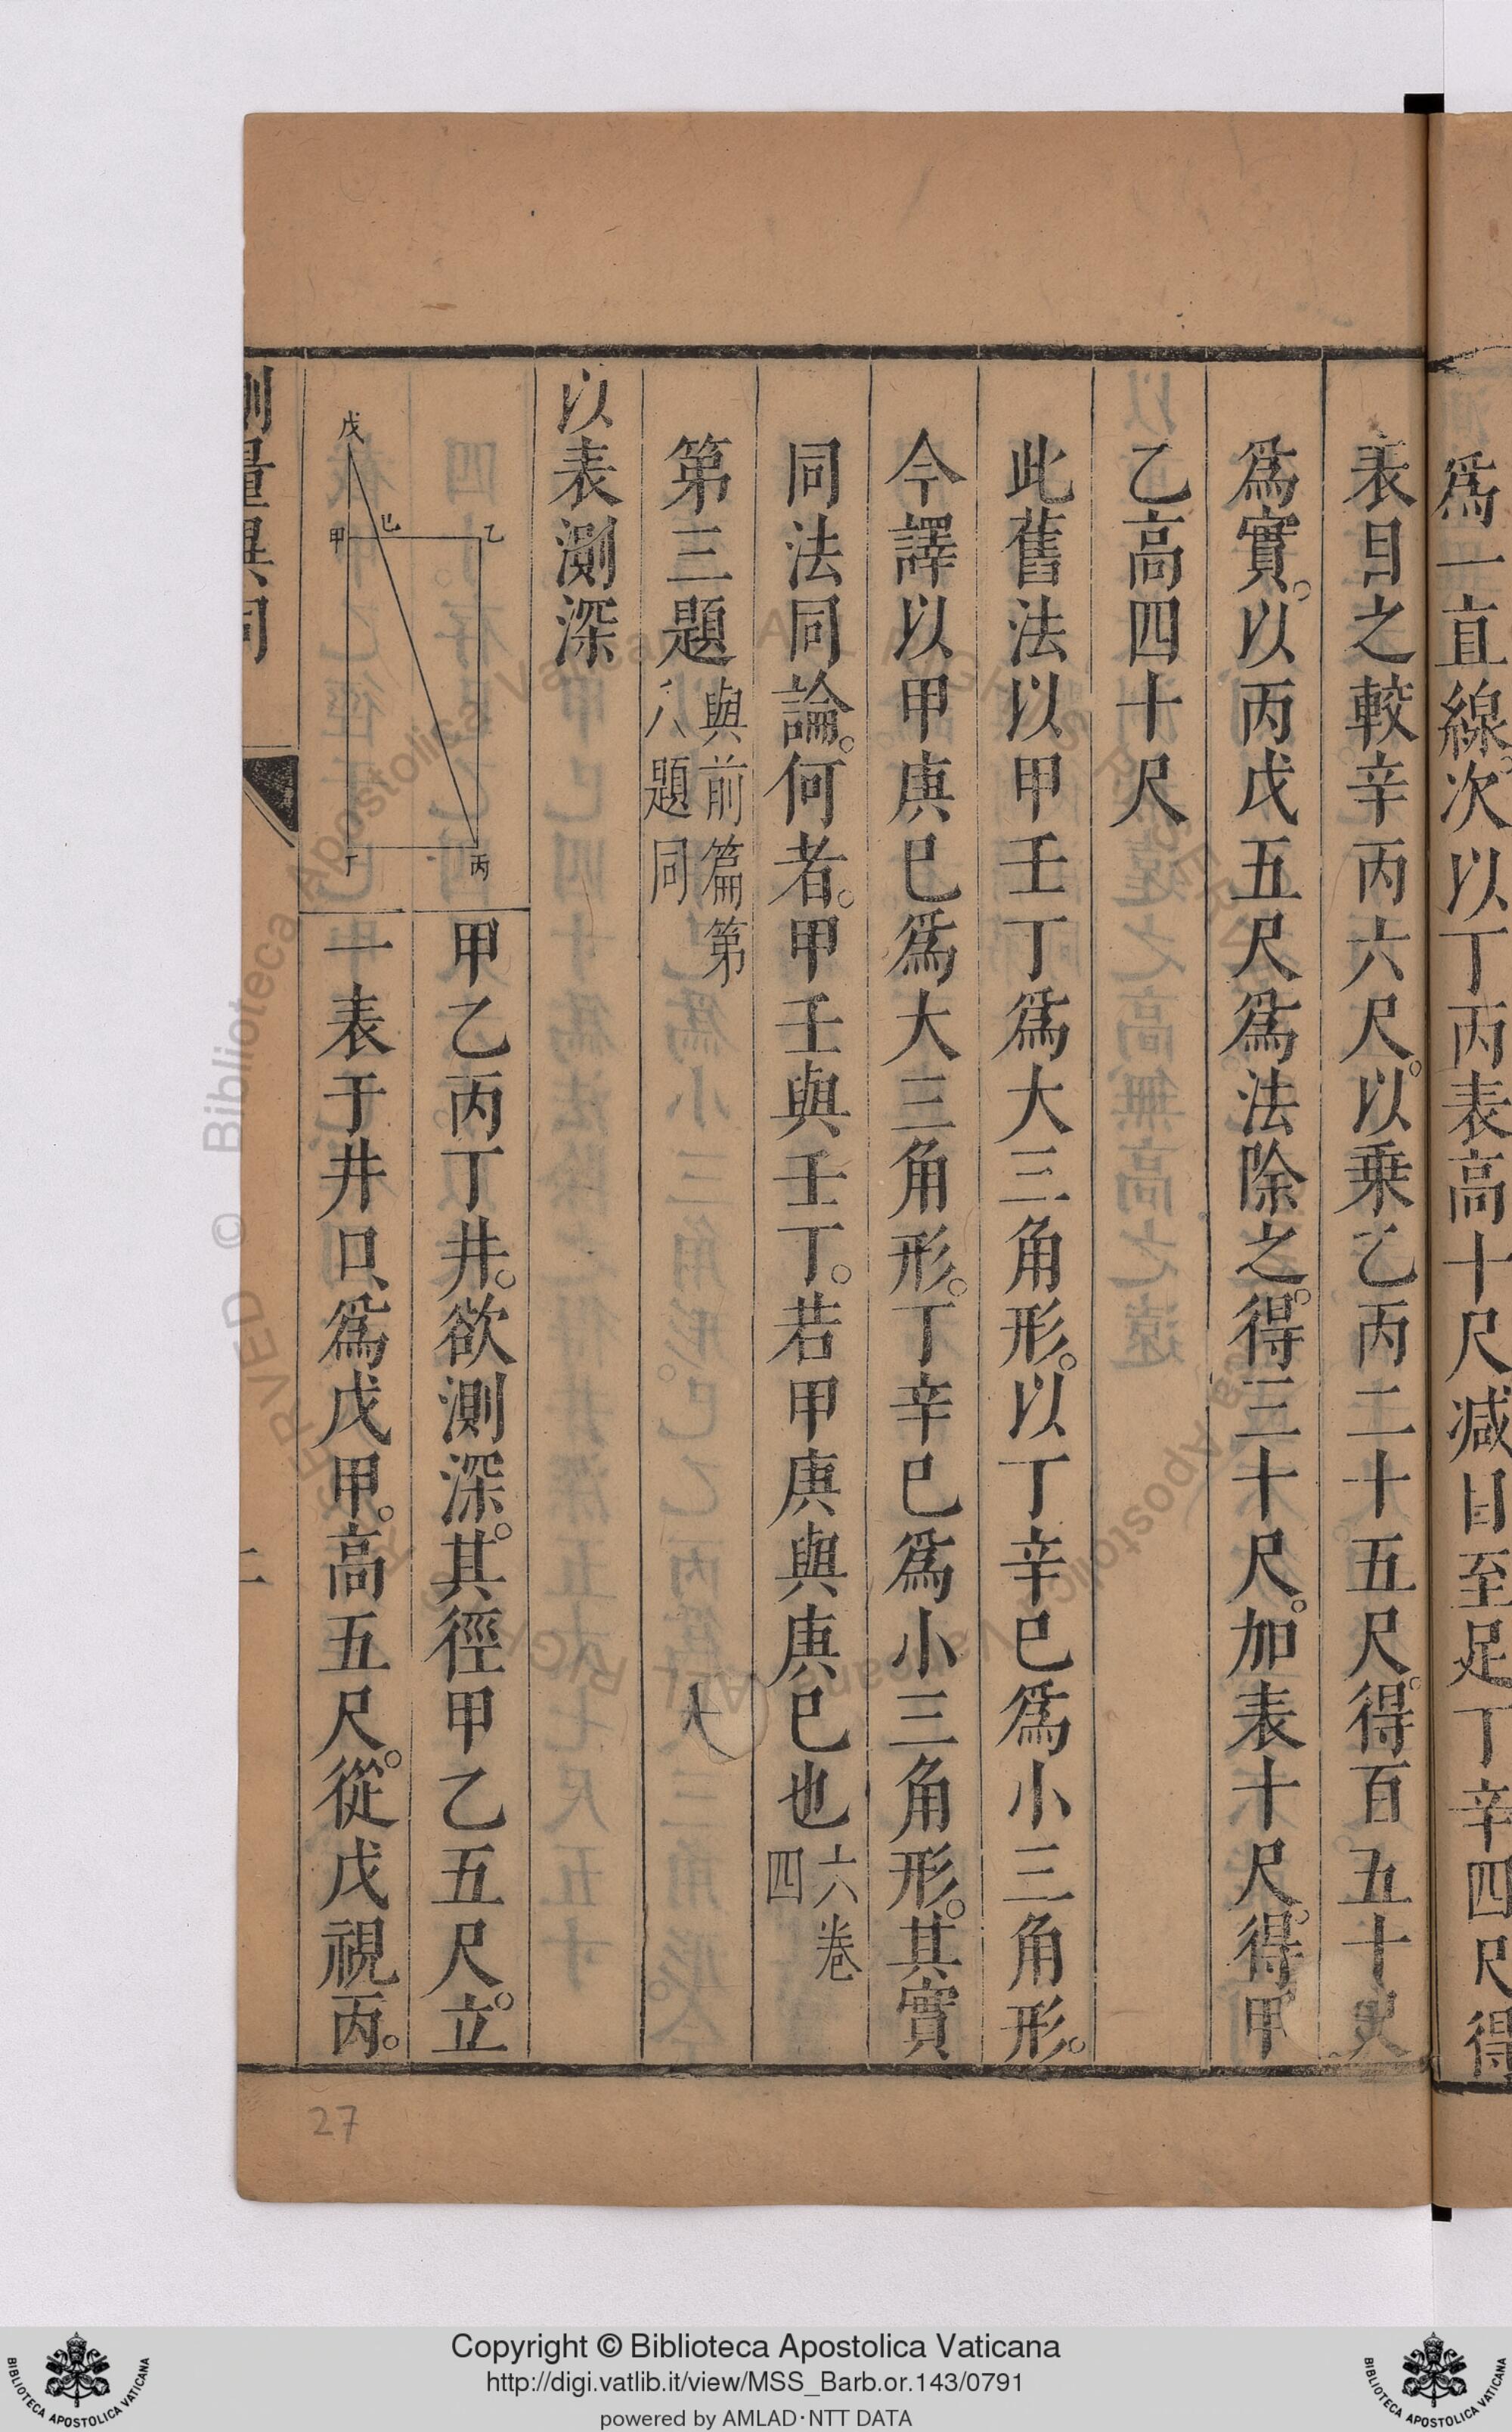 爲一直線。次以丁丙表高十尺减目至足丁辛四尺得
表目之較辛丙六尺。以乗乙丙二十五尺。得百五十尺
爲實。以丙戊五尺爲法除之。得三十尺。加表十尺。得甲
乙高四十尺
此舊法以甲壬丁爲大三角形。以丁辛巳爲小三角形。
今譯以甲庚巳爲大三角形。丁辛巳爲小三角形。其實
同法同論。何者。甲壬與壬丁。若甲庚與庚巳也六卷四
第三題與前篇第八題同
以表測深
甲乙丙丁井。欲測深。其徑甲乙五尺。立
一表于井口、爲戊甲。高五尺。從戊視丙。
戊
甲
巳
乙
丁
丙
測量異同
二
27
Biblioteca Apostolica Vaticana
Copyright © Biblioteca Apostolica Vaticana
http://digi.vatlib.it/view/MSS_Barb.or.143/0791
powered by AMLAD·NTT DATA
BIBLIOTECA APOSTOLICA VATICANA
BIBLIOTECA APOSTOLICA VATICANA